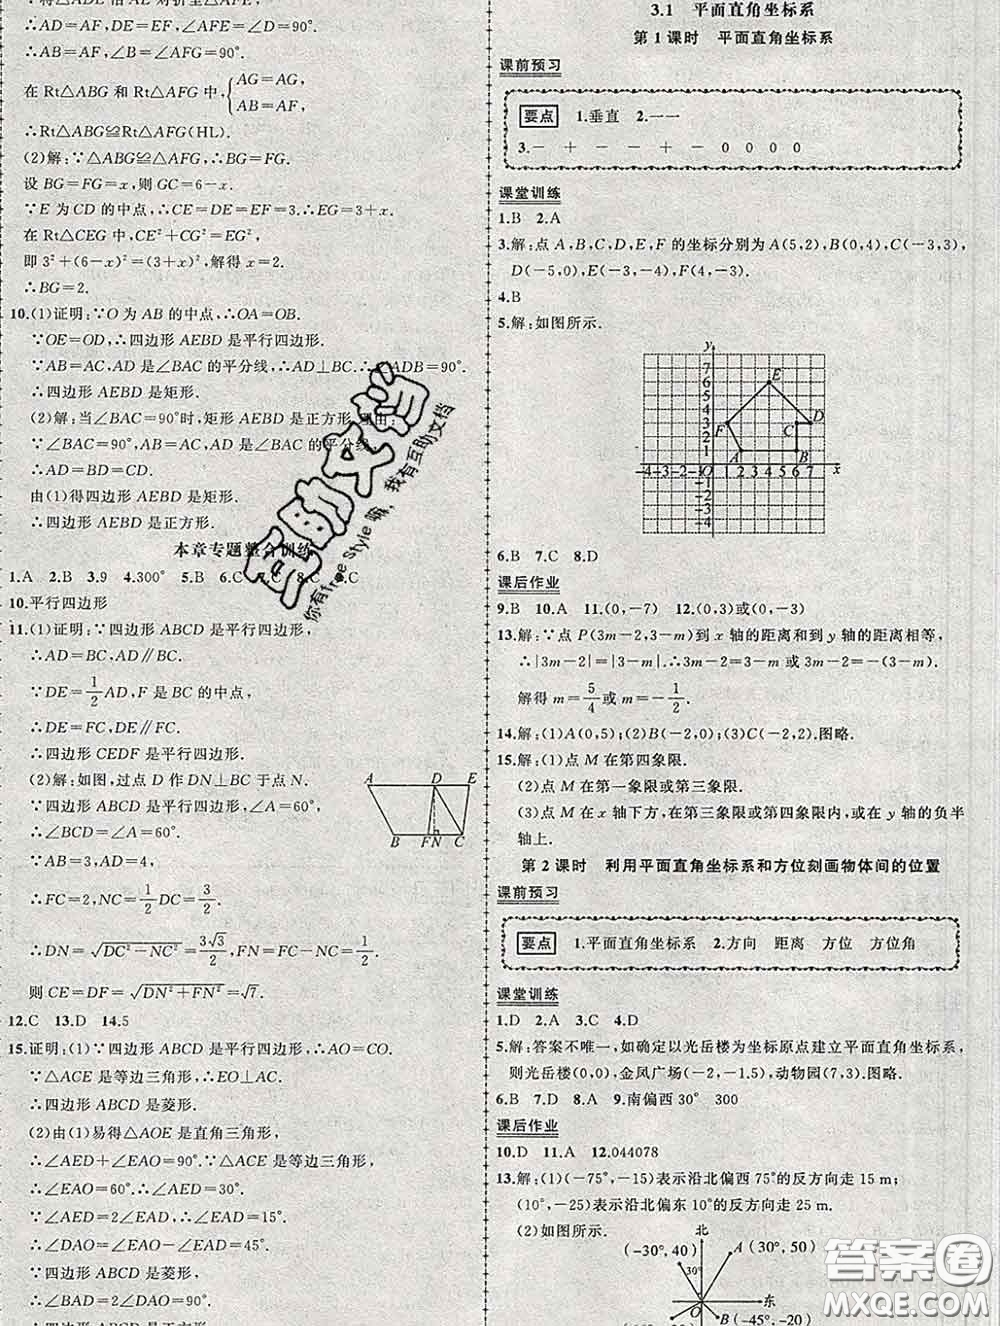 ∴AD=AF,DE=EF,∠AFE=∠D=90°.
∴AB=AF,∠B=∠AFG=90°.
在 Rt△ABG 和 Rt△AFG 中,{AG=AG,
AB=AF,
∴Rt△ABG≌Rt△AFG(HL).
(2)解:∵△ABG≌△AFG,∴BG=FG.
设 BG=FG=x,则 GC=6-x.
∵E 为 CD 的中点,∴CE=DE=EF=3.∴EG=3+x.
在 Rt△CEG 中,CE²+CG²=EG²,
即 3²+(6-x)²=(3+x)²,解得 x=2.
∴BG=2.
10.(1)证明:∵O 为 AB 的中点,∴OA=OB.
∵OE=OD,∴四边形 AEBD 是平行四边形.
∵AB=AC,AD 是∠BAC 的平分线,∴AD⊥BC.∴∠ADB=90°.
∴四边形 AEBD 是矩形.
(2)解:当∠BAC=90°时,矩形 AEBD 是正方形.理由:
∵∠BAC=90°,AB=AC,AD 是∠BAC 的平分线,
∴AD=BD=CD.
由(1)得四边形 AEBD 是矩形.
∴四边形 AEBD 是正方形.
本章专题整合训练
1.A 2.B 3.9 4.300° 5.B 6.C 7.C 8.C 9.C
10.平行四边形
11.(1)证明:∵四边形 ABCD 是平行四边形,
∴AD=BC,AD∥BC.
∵DE=1/2AD,F 是 BC 的中点,
∴DE=FC,DE∥FC.
∴四边形 CEDF 是平行四边形.
(2)解:如图,过点 D 作 DN⊥BC 于点 N.
∵四边形 ABCD 是平行四边形,∠A=60°,
∴∠BCD=∠A=60°.
∵AB=3,AD=4,
∴FC=2,NC=1/2DC=3/2.
∴DN=√(DC²-NC²)=3√3/2,FN=FC-NC=1/2.
则 CE=DF=√(DN²+FN²)=√7.
A D E
B F N C
12.C 13.D 14.5
15.证明:(1)∵四边形 ABCD 是平行四边形,∴AO=CO.
∵△ACE 是等边三角形,∴EO⊥AC.
∴四边形 ABCD 是菱形.
(2)由(1)易得△AOE 是直角三角形,
∴∠AED+∠EAO=90°.∵△ACE 是等边三角形,
∴∠EAO=60°.∴∠AED=30°.
∵∠AED=2∠EAD,∴∠EAD=15°.
∴∠DAO=∠EAO-∠EAD=45°.
∵四边形 ABCD 是菱形,
∴∠BAD=2∠DAO=90°.
∴四边形 ABCD 是正方形.
3.1 平面直角坐标系
第 1 课时 平面直角坐标系
课前预习
要点 1.垂直 2.一一
3.- + - - + - 0 0 0 0
课堂训练
1.B 2.A
3.解:点 A,B,C,D,E,F 的坐标分别为 A(5,2),B(0,4),C(-3,3),
D(-5,0),E(-3,-4),F(4,-3).
4.B
5.解:如图所示.
y
7
6 E
5
4
3 F C D
2
1 A B
-4-3-2-1 O 1 2 3 4 5 6 7 x
-1
-2
-3
-4
6.B 7.C 8.D
课后作业
9.B 10.A 11.(0,-7) 12.(0,3)或(0,-3)
13.解:∵点 P(3m-2,3-m)到 x 轴的距离和到 y 轴的距离相等,
∴|3m-2|=|3-m|.∴3m-2=3-m 或 3m-2=m-3.
解得 m=5/4 或 m=-1/2.
14.解:(1)A(0,5);(2)B(-2,0);(3)C(-2,2).图略.
15.解:(1)点 M 在第四象限.
(2)点 M 在第一象限或第三象限.
(3)点 M 在 x 轴下方,在第三象限或第四象限内,或在 y 轴的负半
轴上.
第 2 课时 利用平面直角坐标系和方位刻画物体间的位置
课前预习
要点 1.平面直角坐标系 2.方向 距离 方位 方位角
课堂训练
1.D 2.A 3.C 4.D
5.解:答案不唯一,如确定以光岳楼为坐标原点建立平面直角坐标系,
则光岳楼(0,0),金凤广场(-2,-1.5),动物园(7,3).图略.
6.B 7.D 8.A 9.南偏西30° 300
课后作业
10.D 11.A 12.044078
13.解:(1)(-75°,-15)表示沿北偏西75°的反方向走 15 m;
(10°,-25)表示沿北偏东10°的反方向走 25 m.
(2)如图所示.
北
(-30°,40) A(30°,50)
30°
O 东
B(-45°,-20)
互助文档
你有free Style 嘛, 我有互助文档
答案圈
MXQE.COM